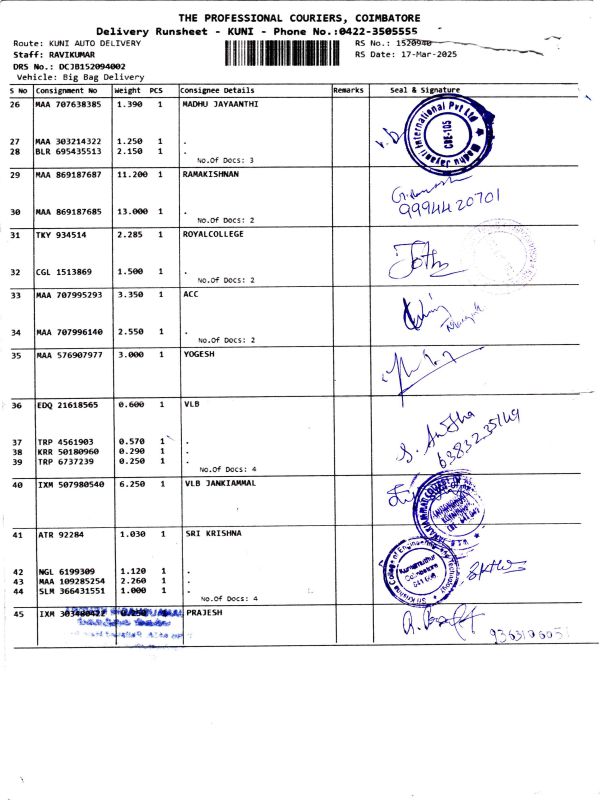 THE PROFESSIONAL COURIERS, COIMBATORE
Delivery Runsheet - KUNI - Phone No.:0422-3505555
Route: KUNI AUTO DELIVERY
RS No.: 1520940
Staff: RAVIKUMAR
RS Date: 17-Mar-2025
DRS No.: DCJB152094002
Vehicle: Big Bag Delivery
S No Consignment No Weight PCS Consignee Details Remarks Seal & Signature
26 MAA 707638385 1.390 1 MADHU JAYAANTHI
Madhu Jayanti International Pvt Ltd
CBE-105
27 MAA 303214322 1.250 1 .
28 BLR 695435513 2.150 1 .
No.Of Docs: 3
29 MAA 869187687 11.200 1 RAMAKISHNAN
9994420701
30 MAA 869187685 13.000 1 .
No.Of Docs: 2
31 TKY 934514 2.285 1 ROYALCOLLEGE
32 CGL 1513869 1.500 1 .
No.Of Docs: 2
33 MAA 707995293 3.350 1 ACC
34 MAA 707996140 2.550 1 .
No.Of Docs: 2
35 MAA 576907977 3.000 1 YOGESH
36 EDQ 21618565 0.600 1 VLB
37 TRP 4561903 0.570 1 .
38 KRR 50180960 0.290 1 .
39 TRP 6737239 0.250 1 .
No.Of Docs: 4
40 IXM 507980540 6.250 1 VLB JANKIAMMAL
41 ATR 92284 1.030 1 SRI KRISHNA
Sri Krishna College of Engineering & Technology
Kuniamuthur
Coimbatore
641 008
42 NGL 6199309 1.120 1 .
43 MAA 109285254 2.260 1 .
44 SLM 366431551 1.000 1 .
No.Of Docs: 4
45 IXM 1 PRAJESH